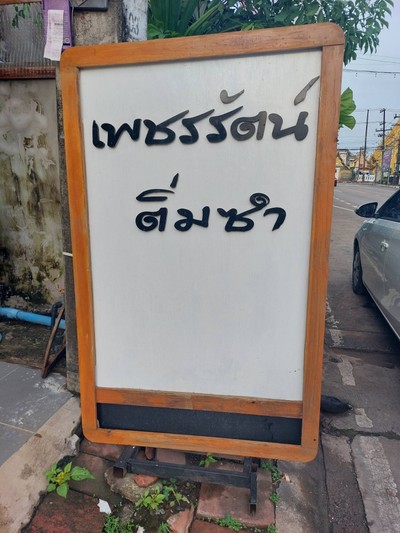 เพชรรัตน์
ติ่มซำ